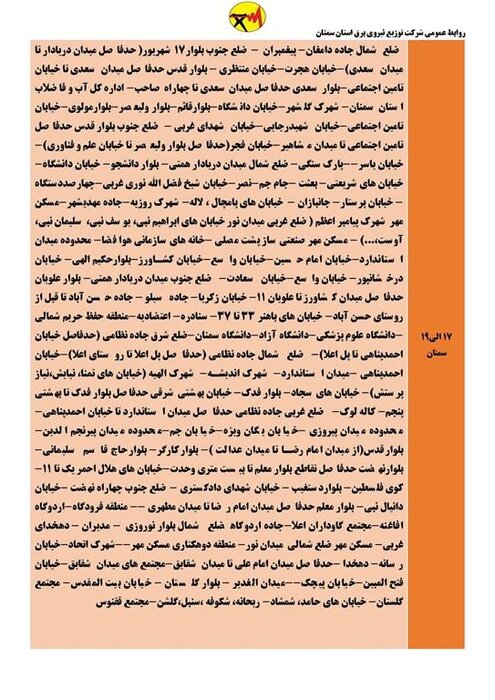 روابط عمومی شرکت توزیع نیروی برق استان سمنان
ضلع شمال جاده دامغان- پیغمبران - ضلع جنوب بلوار ۱۷ شهریور( حدفاصل میدان دریادار تا
میدان سعدی)-خیابان هجرت-خیابان منتظری - بلوار قدس حدفاصل میدان سعدی تا خیابان
تامین اجتماعی-بلوار سعدی حدفاصل میدان سعدی تا چهاراه صاحب- اداره کل آب و فاضلاب
استان سمنان- شهرک گلشهر- خیابان دانشگاه-بلوارقائم-بلوار ولیعصر-بلوارمولوی-خیابان
تامین اجتماعی-خیابان شهیدرجایی-خیابان شهدای غربی - ضلع جنوب بلوار قدس حدفاصل
تامین اجتماعی تا میدان مشاهیر- خیابان فجر(حدفاصل بلوار ولیعصر تا خیابان علم و فناوری)-
خیابان یاسر--پارک سنگی- ضلع شمال میدان دریادار همتی- بلوار دانشجو- خیابان دانشگاه-
خیابان های شریعتی- بعثت -جام جم-نصر-خیابان شیخ فضل الله نوری غربی-چهارصددستگاه
- خیابان پرستار- جانبازان - خیابان های پامچال ، لاله- شهرک روزیه-جاده مهدیشهر-مسکن
مهر شهرک پیامبر اعظم ( ضلع غربی میدان نور خیابان های ابراهیم نبی، یوسف نبی، سلیمان نبی،
آوست،...) - مسکن مهر صنعتی ساز پشت مصلی -خانه های سازمانی هوا فضا- محدوده میدان
استاندارد-خیابان امام حسین-خیابان واسع-خیابان کشاورز-بلوارحکیم الهی-خیابان
درخشانپور- خیابان واسع-خیابان سعادت- ضلع جنوب میدان دریادار همتی- بلوار علویان
حدفاصل میدان کشاورز تا علویان ۱۱- خیابان زکریا- جاده سیلو - جاده حسن آباد تا قبل از
روستای حسن آباد- خیابان های باهنر ۳۳ تا ۳۷- سنادره- اعتضادیه-منطقه حفظ حریم شمالی
-دانشگاه علوم پزشکی-دانشگاه آزاد-دانشگاه سمنان-ضلع شرق جاده نظامی (حدفاصل خیابان
احمدپناهی تا پل اعلا)- ضلع شمال جاده نظامی (حدفاصل پل اعلا تا روستای اعلا)-خیابان
احمدپناهی -میدان استاندارد- شهرک اندیشه- شهرک الهیه (خیابان های تمنا، نیایش،نیاز
پرستش)- خیابان های سجاد- بلوار فدک- خیابان بهشتی شرقی حدفاصل بلوار فدک تا بهشتی
پنجم- کاله لوک- ضلع غربی جاده نظامی حدفاصل میدان استاندارد تا خیابان احمدپناهی-
محدوده میدان پیروزی -خیابان یگان ویژه-خیابان جم-محدوده میدان پیرنجم الدین-
بلوار قدس(از میدان امام رضا تا میدان عدالت )- بلوار کارگر- بلوار حاج قاسم سلیمانی-
بلوارنهضت حدفاصل تقاطع بلوار معلم تا بیست متری وحدت-خیابان های هلال احمر یک تا ۱۱-
کوی فلسطین- بلوار دستغیب - خیابان شهدای دادگستری - ضلع جنوب چهاراه نهضت- خیابان
دانیال نبی- بلوار معلم حدفاصل میدان امام رضا تا میدان مطهری -- منطقه فرودگاه-اردوگاه
افاغنه-مجتمع گاوداران اعلا-جاده اردوگاه ضلع شمال بلوار نوروزی - مدیران - دهخدای
غربی- مسکن مهر ضلع شمالی میدان نور- منطقه دوهکتاری مسکن مهر--شهرک اتحاد-خیابان
رسانه- دهخدا -حدفاصل میدان امام علی تا میدان شقایق-مجتمع های میدان شقایق-خیابان
فتح المبین-خیابان پیچک--میدان الغدیر - بلوار گلستان - خیابان بیت المقدس- مجتمع
گلستان- خیابان های حامد، شمشاد- ریحانه، شکوفه ،سنبل،گلشن-مجتمع ققنوس
۱۷ الی ۱۹
سمنان